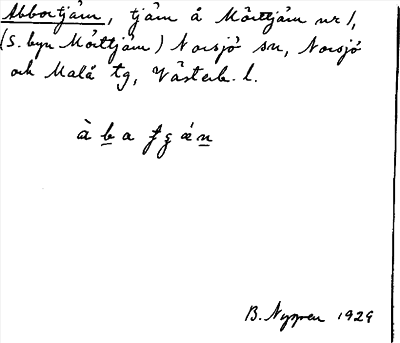 Abbortjärn, tjärn å Mörttjärn nr 1,
(S. byn Mörttjärn) Norsjö sn, Norsjö
och Malå tg, Västerb. l.
à b a
B. Nyman 1929